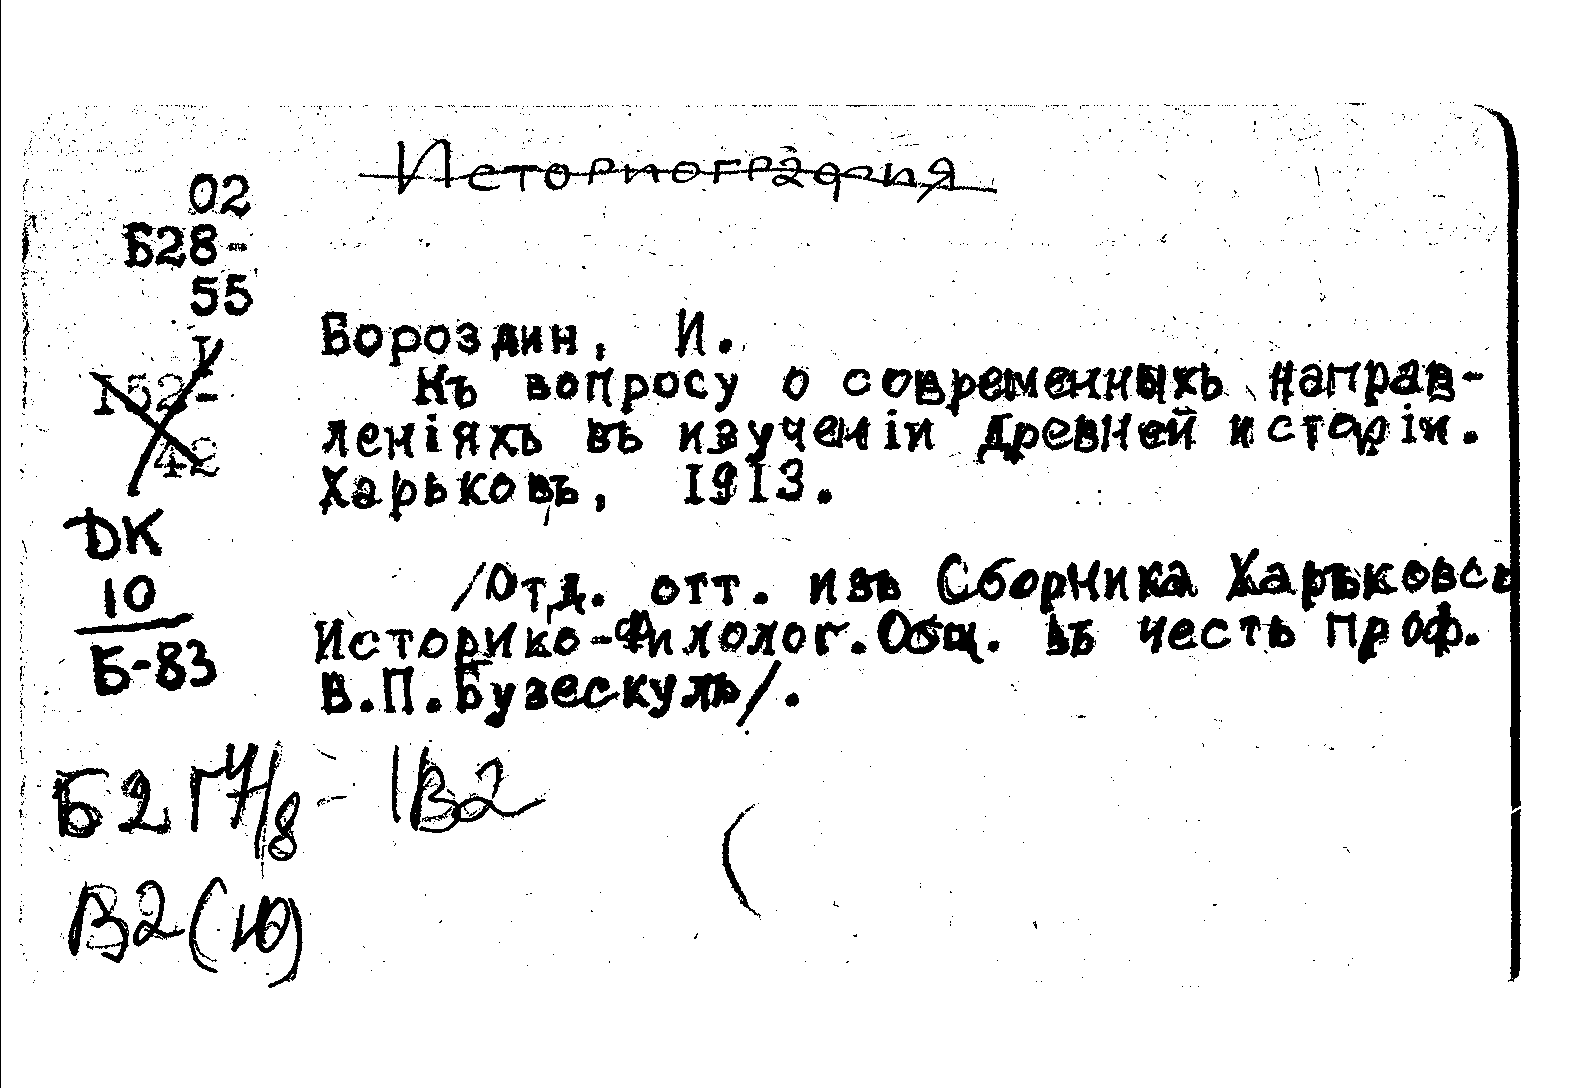 Историография
02
Б28-
55
I
I52-
42
Бороздин, И.
Къ вопросу о современныхъ направ-
леніяхъ въ изученіи древней исторіи.
Харьковъ, 1913.
ДК
10
Б-83
/Отд. отт. изъ Сборника Харьковск
Историко-Филолог.Общ. въ честь Проф.
В.П.Бузескулъ/.
Б2 Г4/8 - 1В2
В2(10)